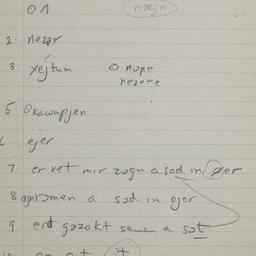 01 næjn
2. nezər
3 xejtum O nope
hezeme
5. @kawumpjen
ejer
7. er vet mir zogn a sod in øjer
8 ajnromen a sod in ojer
9. erd gəzokt a sot